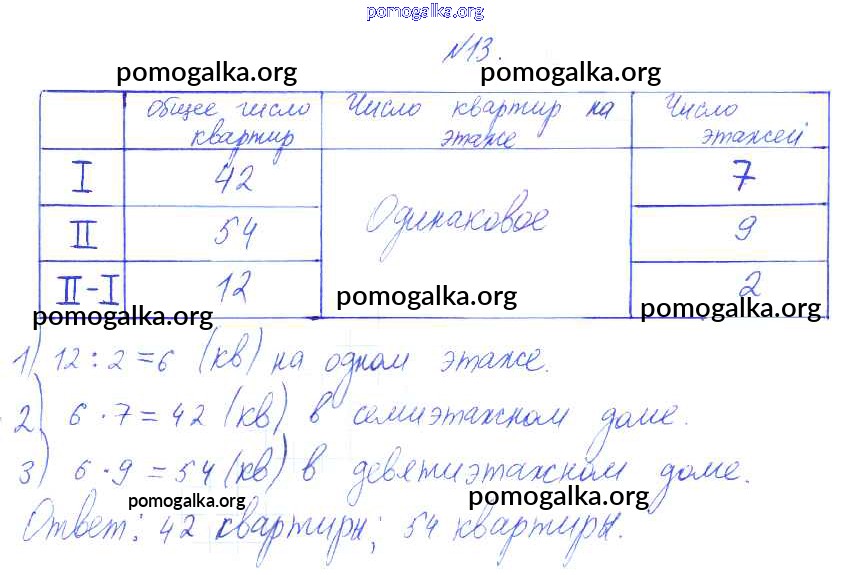 pomogalka.org
№13.
pomogalka.org pomogalka.org
общее число Число квартир на Число
квартир этаже этажей
I 42 7
Одинаковое
II 54 9
II-I 12 2
pomogalka.org pomogalka.org pomogalka.org
1) 12 : 2 = 6 (кв) на одном этаже.
2) 6 · 7 = 42 (кв) в семиэтажном доме.
3) 6 · 9 = 54 (кв) в девятиэтажном доме.
pomogalka.org pomogalka.org
Ответ: 42 квартиры; 54 квартиры.